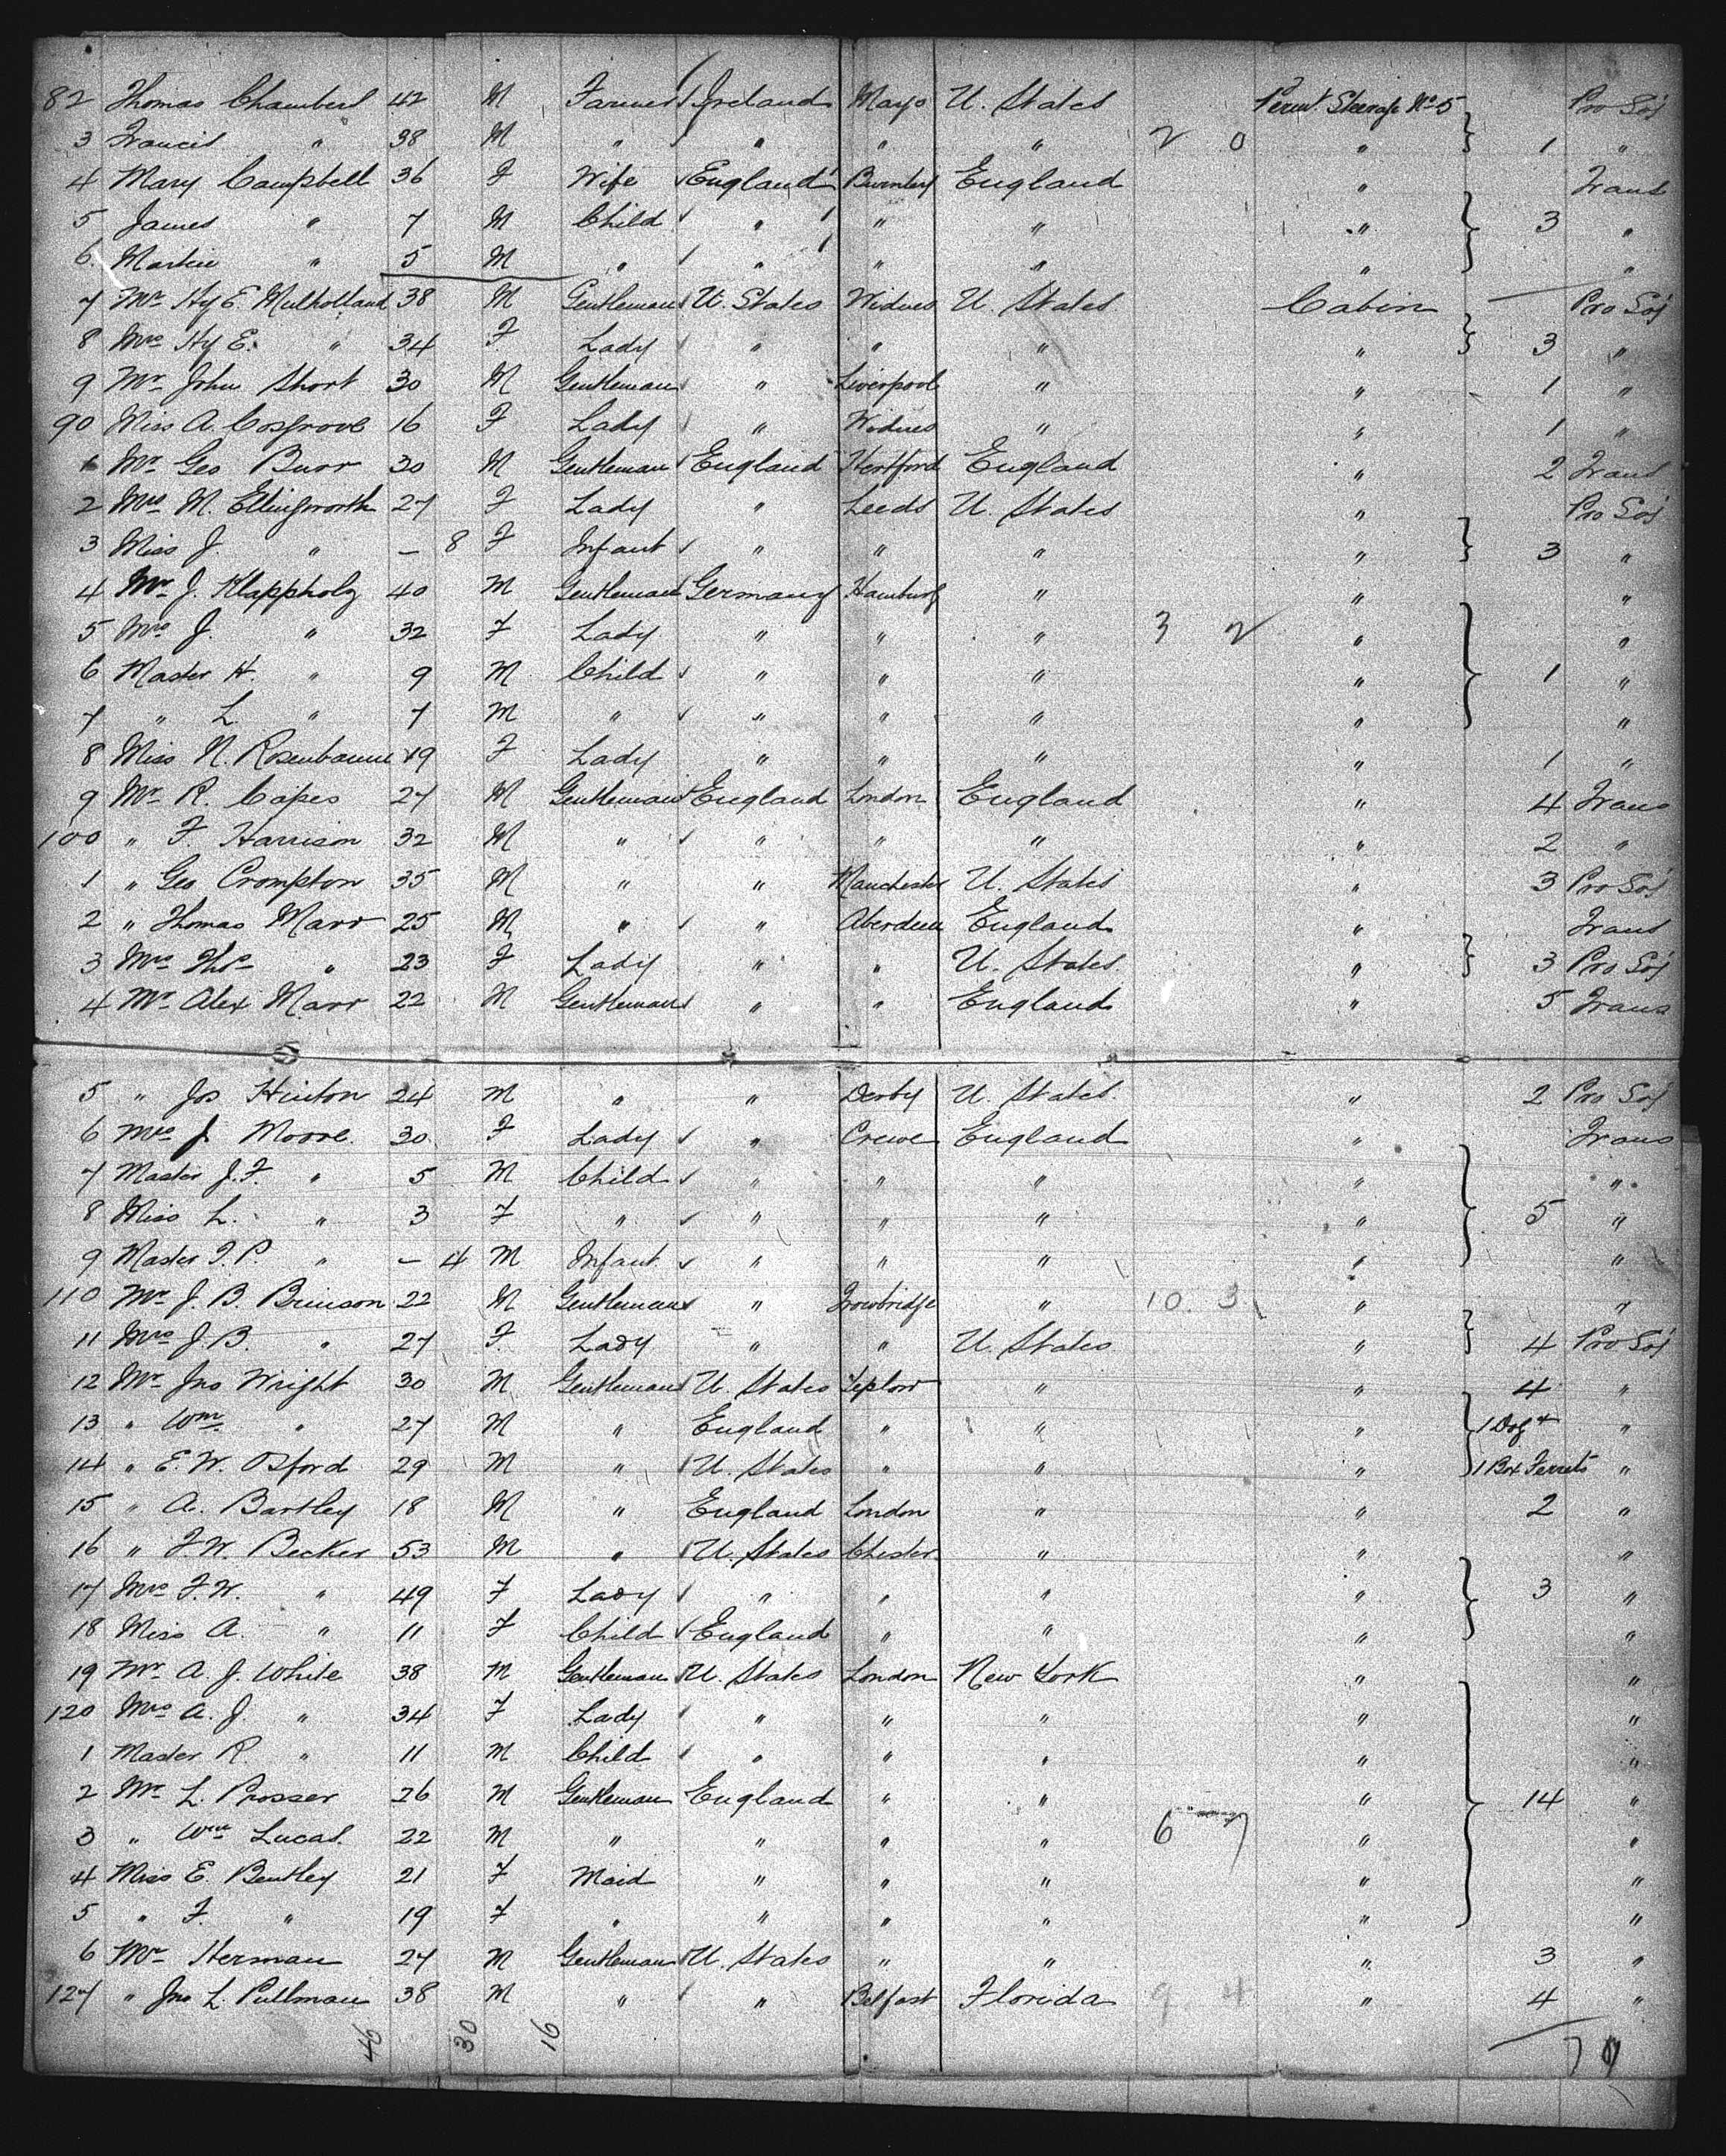 82 Thomas Chambers 42 M Farmer Ireland Mayo U. States Perm't Steerage No 5 Pro Soj
3 Francis " 38 M " " " " 2 0 " 1 "
4 Mary Campbell 36 F Wife England Burnley England " Trans
5 James " 7 M Child " " " " 3 "
6 Martin " 5 M " " " " " "
7 Mr Hy E. Mulholland 38 M Gentleman U. States Widnes U. States Cabin Pro Soj
8 Mrs Hy E. " 34 F Lady " " " " 3 "
9 Mr John Short 30 M Gentleman " Liverpool " " 1 "
90 Miss A. Cosgrove 16 F Lady " Widnes " " 1 "
1 Mr Geo Burr 30 M Gentleman England Hertford England " 2 Trans
2 Mrs M. Ellingworth 27 F Lady " Leeds U. States " Pro Soj
3 Miss J. " — 8 F Infant " " " " 3 "
4 Mr J. Klappholz 40 M Gentleman Germany Hamburg " " "
5 Mrs J. " 32 F Lady " " " 3 2 " "
6 Master H. " 9 M Child " " " " 1 "
7 " L. " 7 M " " " " " "
8 Miss N. Rosenbaum 19 F Lady " " " " 1 "
9 Mr R. Capes 27 M Gentleman England London England " 4 Trans
100 " F. Harrison 32 M " " " " " 2 "
1 " Geo Crompton 35 M " " Manchester U. States " 3 Pro Soj
2 " Thomas Marr 25 M " " Aberdeen England " Trans
3 Mrs Thos " 23 F Lady " " U. States " 3 Pro Soj
4 Mr Alex Marr 22 M Gentleman " " England " 5 Trans
5 " Jos Hinton 24 M " " Derby U. States " 2 Pro Soj
6 Mrs J. Moore 30 F Lady " Crewe England " Trans
7 Master J.F. " 5 M Child " " " " "
8 Miss L. " 3 F " " " " " 5 "
9 Master T.P. " — 4 M Infant " " " " "
110 Mr J. B. Brinson 22 M Gentleman " Trowbridge " 10. 3 " "
11 Mrs J.B. " 27 F Lady " " U. States " 4 Pro Soj
12 Mr Jno Wright 30 M Gentleman U. States Teplow " " 4 "
13 " Wm " 27 M " England " " " 1 Dog + "
14 " E.W. Osford 29 M " U. States " " " 1 Box Ferrets "
15 " A. Bartley 18 M " England London " " 2 "
16 " F.W. Becker 53 M " U. States Chester " " "
17 Mrs F.W. " 49 F Lady " " " " 3 "
18 Miss A. " 11 F Child England " " " "
19 Mr A. J. White 38 M Gentleman U. States London New York " "
120 Mrs A. J. " 34 F Lady " " " " "
1 Master R. " 11 M Child " " " " "
2 Mr L. Prosser 26 M Gentleman England " " " 14 "
3 " Wm Lucas 22 M " " " " 6 7 " "
4 Miss E. Bentley 21 F Maid " " " " "
5 " F. " 19 F " " " " " "
6 Mr Herman 27 M Gentleman U. States " " " 3 "
127 " Jno L. Pullman 38 M " " Belfast Florida 9 4 " 4 "
46 30 16